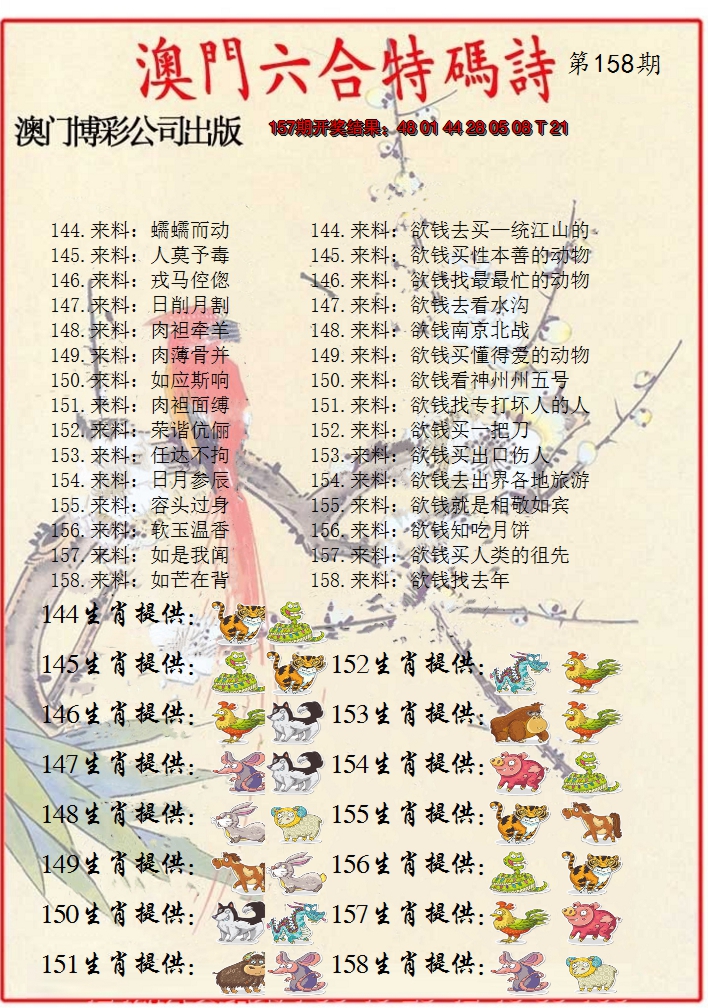 澳門六合特碼詩 第158期
澳门博彩公司出版 157期开奖结果：48 01 44 28 05 08 T 21
144.来料：蠕蠕而动 144.来料：欲钱去买一统江山的
145.来料：人莫予毒 145.来料：欲钱买性本善的动物
146.来料：戎马倥偬 146.来料：欲钱找最最忙的动物
147.来料：日削月割 147.来料：欲钱去看水沟
148.来料：肉袒牵羊 148.来料：欲钱南京北战
149.来料：肉薄骨并 149.来料：欲钱买懂得爱的动物
150.来料：如应斯响 150.来料：欲钱看神州州五号
151.来料：肉袒面缚 151.来料：欲钱找专打坏人的人
152.来料：荣谐伉俪 152.来料：欲钱买一把刀
153.来料：任达不拘 153.来料：欲钱买出口伤人
154.来料：日月参辰 154.来料：欲钱去出界各地旅游
155.来料：容头过身 155.来料：欲钱就是相敬如宾
156.来料：软玉温香 156.来料：欲钱知吃月饼
157.来料：如是我闻 157.来料：欲钱买人类的祖先
158.来料：如芒在背 158.来料：欲钱找去年
144生肖提供：
145生肖提供： 152生肖提供：
146生肖提供： 153生肖提供：
147生肖提供： 154生肖提供：
148生肖提供： 155生肖提供：
149生肖提供： 156生肖提供：
150生肖提供： 157生肖提供：
151生肖提供： 158生肖提供：